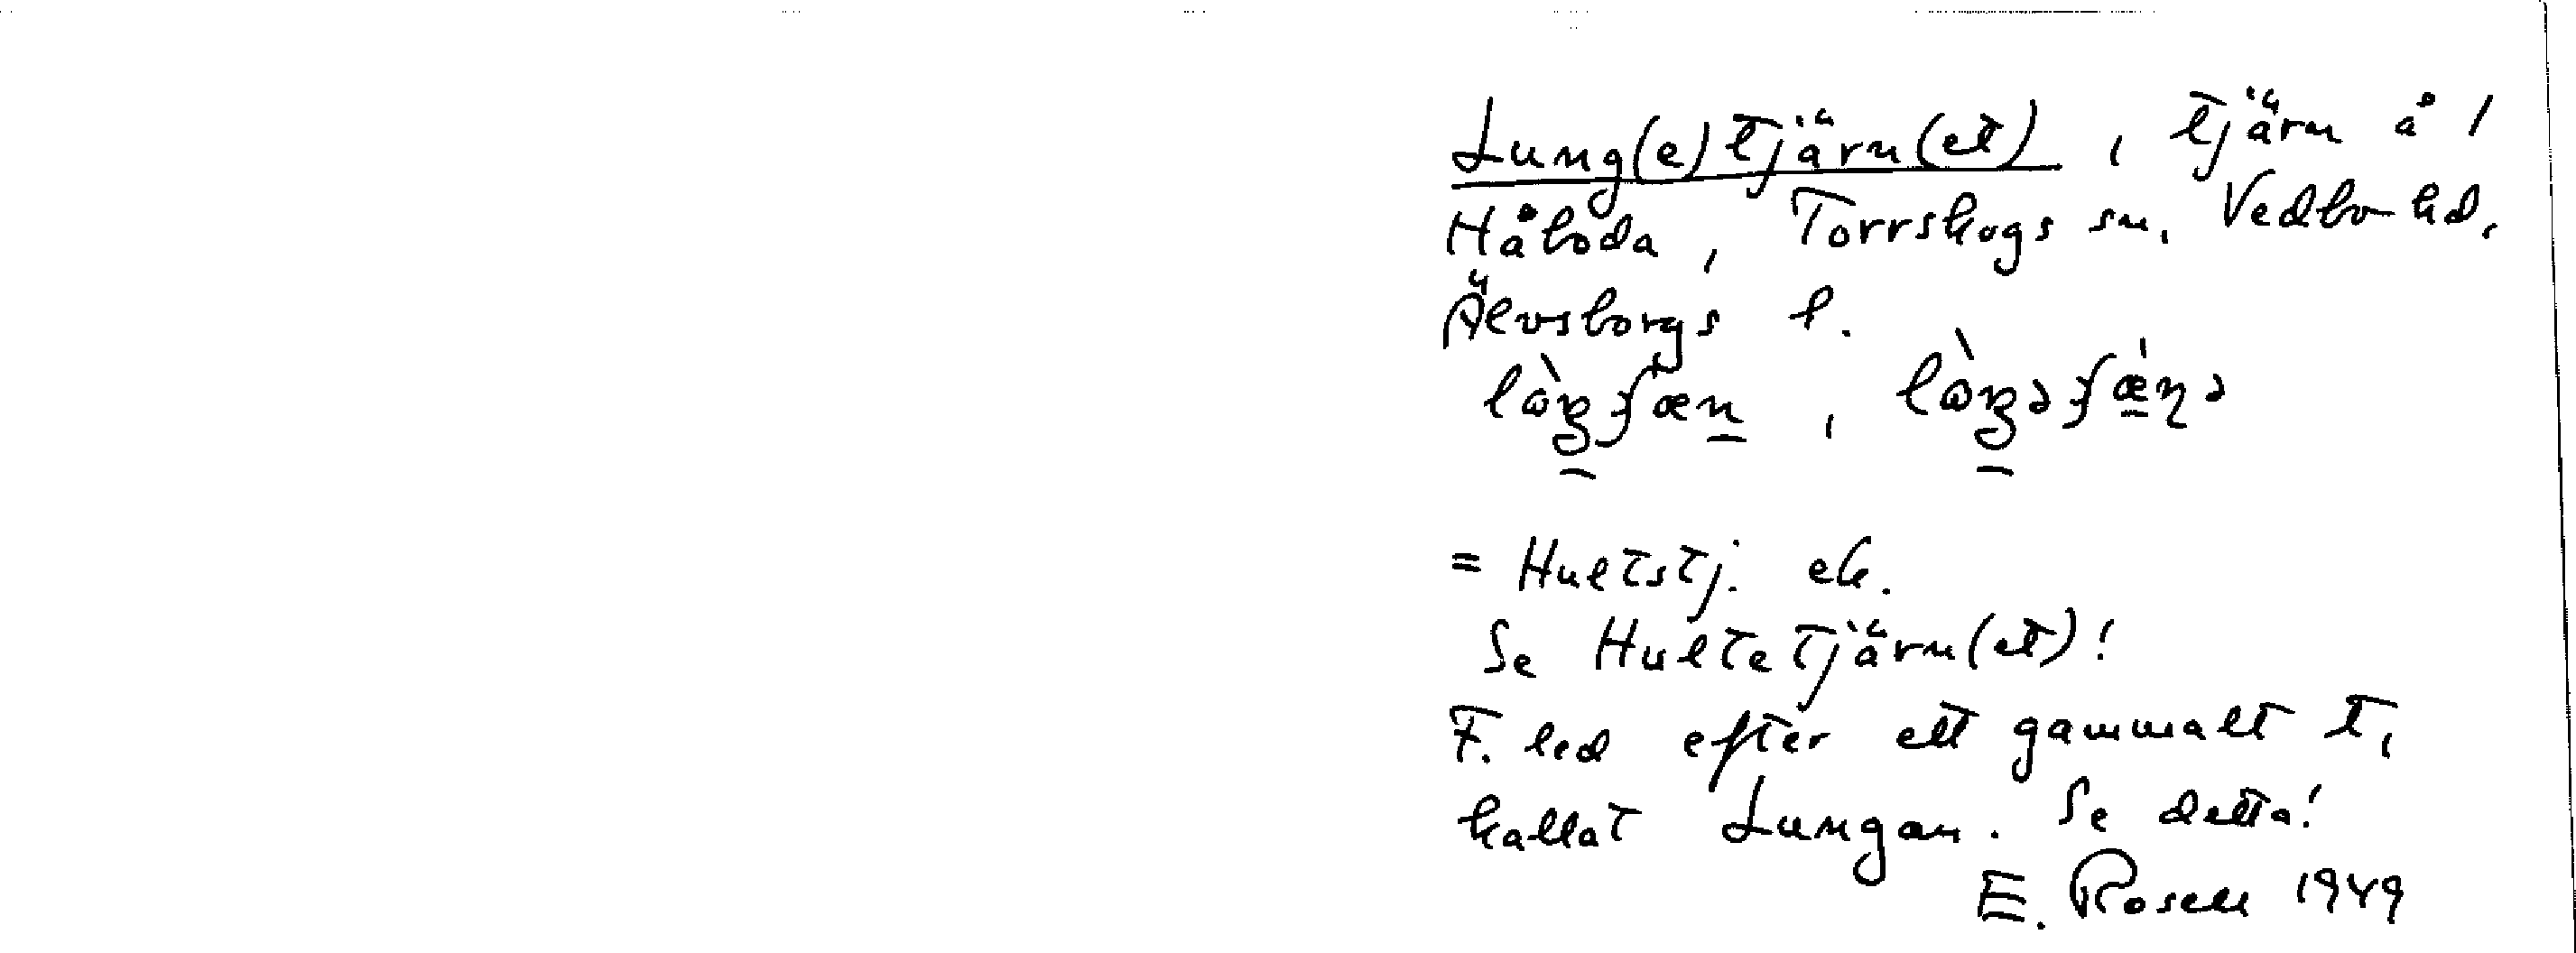 Lung(e)tjärn(et), tjärn å 1
Håboda, Torrskogs sn. Vedbo hd,
Älvsborgs l.
= Hultstj. ek.
Se Hultetjärn(et)!
F. led efter ett gammalt t,
kallat Lungan. Se detta!
E. Rosell 1949